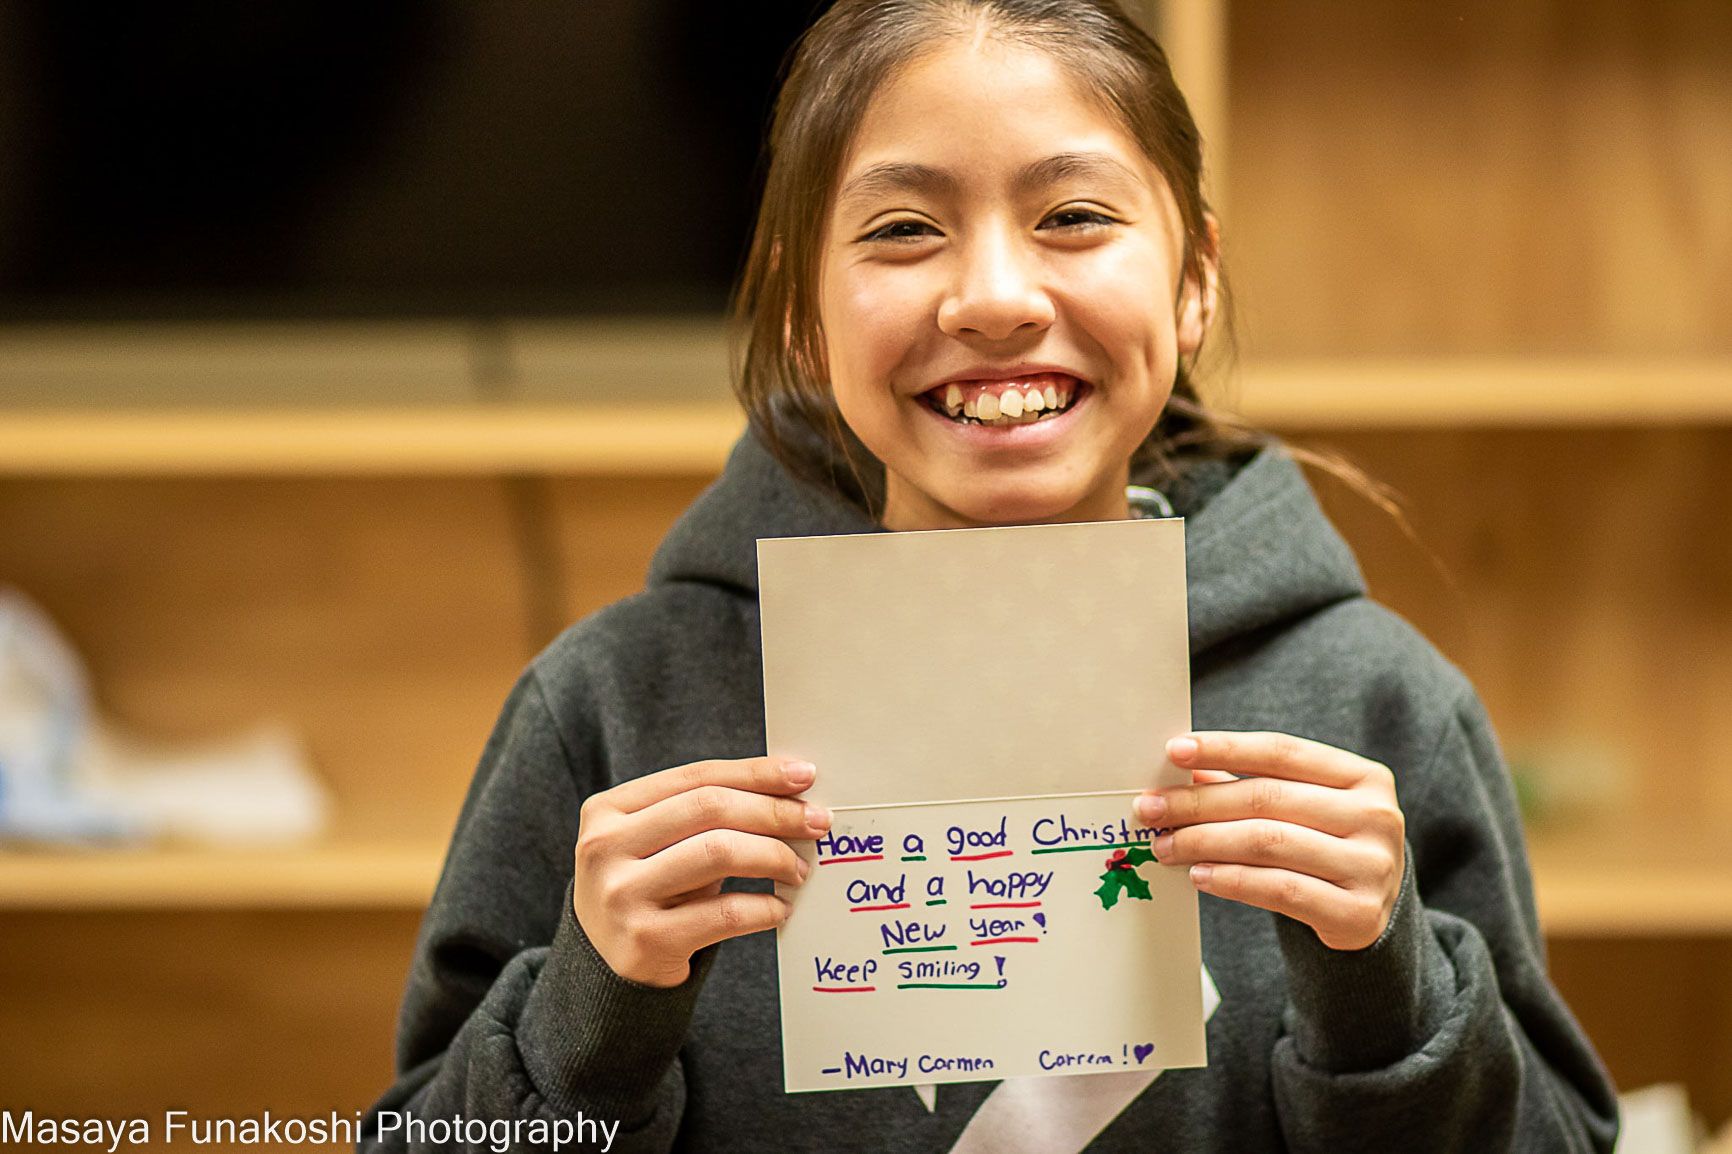 Have a good Christm
and a happy
New year!
Keep smiling!
-Mary Carmen Correa!
Masaya Funakoshi Photography